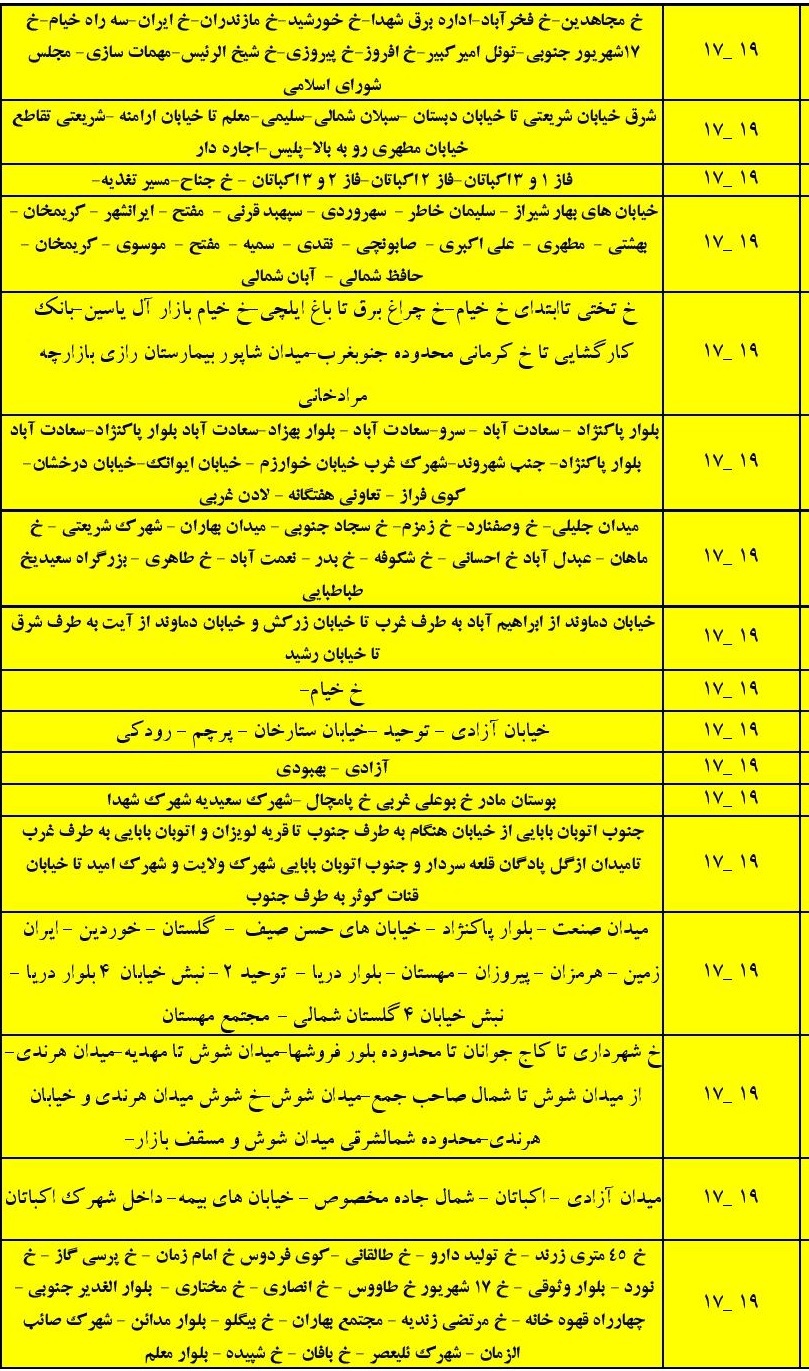 خ مجاهدین-خ فخرآباد-اداره برق شهدا-خ خورشید-خ مازندران-خ ایران-سه راه خیام-خ
۱۷شهریور جنوبی-تونل امیرکبیر-خ افروز-خ پیروزی-خ شیخ الرئیس-مهمات سازی- مجلس
شورای اسلامی
۱۷_ ۱۹
شرق خیابان شریعتی تا خیابان دبستان -سبلان شمالی-سلیمی-معلم تا خیابان ارامنه -شریعتی تقاطع
خیابان مطهری رو به بالا-پلیس-اجاره دار
۱۷_ ۱۹
فاز ۱ و ۳اکباتان-فاز ۲اکباتان-فاز ۲ و ۳اکباتان - خ جناح-مسیر تغذیه-
۱۷_ ۱۹
خیابان های بهار شیراز - سلیمان خاطر - سهروردی - سپهبد قرنی - مفتح - ایرانشهر - کریمخان -
بهشتی - مطهری - علی اکبری - صابونچی - نقدی - سمیه - مفتح - موسوی - کریمخان -
حافظ شمالی - آبان شمالی
۱۷_ ۱۹
خ تختی تاابتدای خ خیام-خ چراغ برق تا باغ ایلچی-خ خیام بازار آل یاسین-بانک
کارگشایی تا خ کرمانی محدوده جنوبغرب-میدان شاپور بیمارستان رازی بازارچه
مرادخانی
۱۷_ ۱۹
بلوار پاکنژاد - سعادت آباد - سرو-سعادت آباد - بلوار بهزاد-سعادت آباد بلوار پاکنژاد-سعادت آباد
بلوار پاکنژاد- جنب شهروند-شهرک غرب خیابان خوارزم - خیابان ایوانک-خیابان درخشان-
کوی فراز - تعاونی هفتگانه - لادن غربی
۱۷_ ۱۹
میدان جلیلی- خ وصفنارد- خ زمزم- خ سجاد جنوبی - میدان بهاران - شهرک شریعتی - خ
ماهان - عبدل آباد خ احسانی - خ شکوفه - خ بدر - نعمت آباد - خ طاهری - بزرگراه سعیدیخ
طباطبایی
۱۷_ ۱۹
خیابان دماوند از ابراهیم آباد به طرف غرب تا خیابان زرکش و خیابان دماوند از آیت به طرف شرق
تا خیابان رشید
۱۷_ ۱۹
خ خیام-
۱۷_ ۱۹
خیابان آزادی - توحید -خیابان ستارخان - پرچم - رودکی
۱۷_ ۱۹
آزادی - بهبودی
۱۷_ ۱۹
بوستان مادر خ بوعلی غربی خ پامچال -شهرک سعیدیه شهرک شهدا
۱۷_ ۱۹
جنوب اتوبان بابایی از خیابان هنگام به طرف جنوب تا قریه لویزان و اتوبان بابایی به طرف غرب
تامیدان ازگل پادگان قلعه سردار و جنوب اتوبان بابایی شهرک ولایت و شهرک امید تا خیابان
قنات کوثر به طرف جنوب
۱۷_ ۱۹
میدان صنعت - بلوار پاکنژاد - خیابان های حسن صیف - گلستان - خوردین - ایران
زمین - هرمزان - پیروزان - مهستان - بلوار دریا - توحید ۲ - نبش خیابان ۴ بلوار دریا -
نبش خیابان ۴ گلستان شمالی - مجتمع مهستان
۱۷_ ۱۹
خ شهرداری تا کاج جوانان تا محدوده بلور فروشها-میدان شوش تا مهدیه-میدان هرندی-
از میدان شوش تا شمال صاحب جمع-میدان شوش-خ شوش میدان هرندی و خیابان
هرندی-محدوده شمالشرقی میدان شوش و مسقف بازار-
۱۷_ ۱۹
میدان آزادی - اکباتان - شمال جاده مخصوص - خیابان های بیمه- داخل شهرک اکباتان
۱۷_ ۱۹
خ ٤٥ متری زرند - خ تولید دارو - خ طالقانی -کوی فردوس خ امام زمان - خ پرسی گاز - خ
نورد - بلوار وثوقی - خ ۱۷ شهریور خ طاووس - خ انصاری - خ مختاری - بلوار الغدیر جنوبی -
چهارراه قهوه خانه - خ مرتضی زندیه - مجتمع بهاران - خ بیگلو - بلوار مدائن - شهرک صائب
الزمان - شهرک ئلیعصر - خ بافان - خ شپیده - بلوار معلم
۱۷_ ۱۹